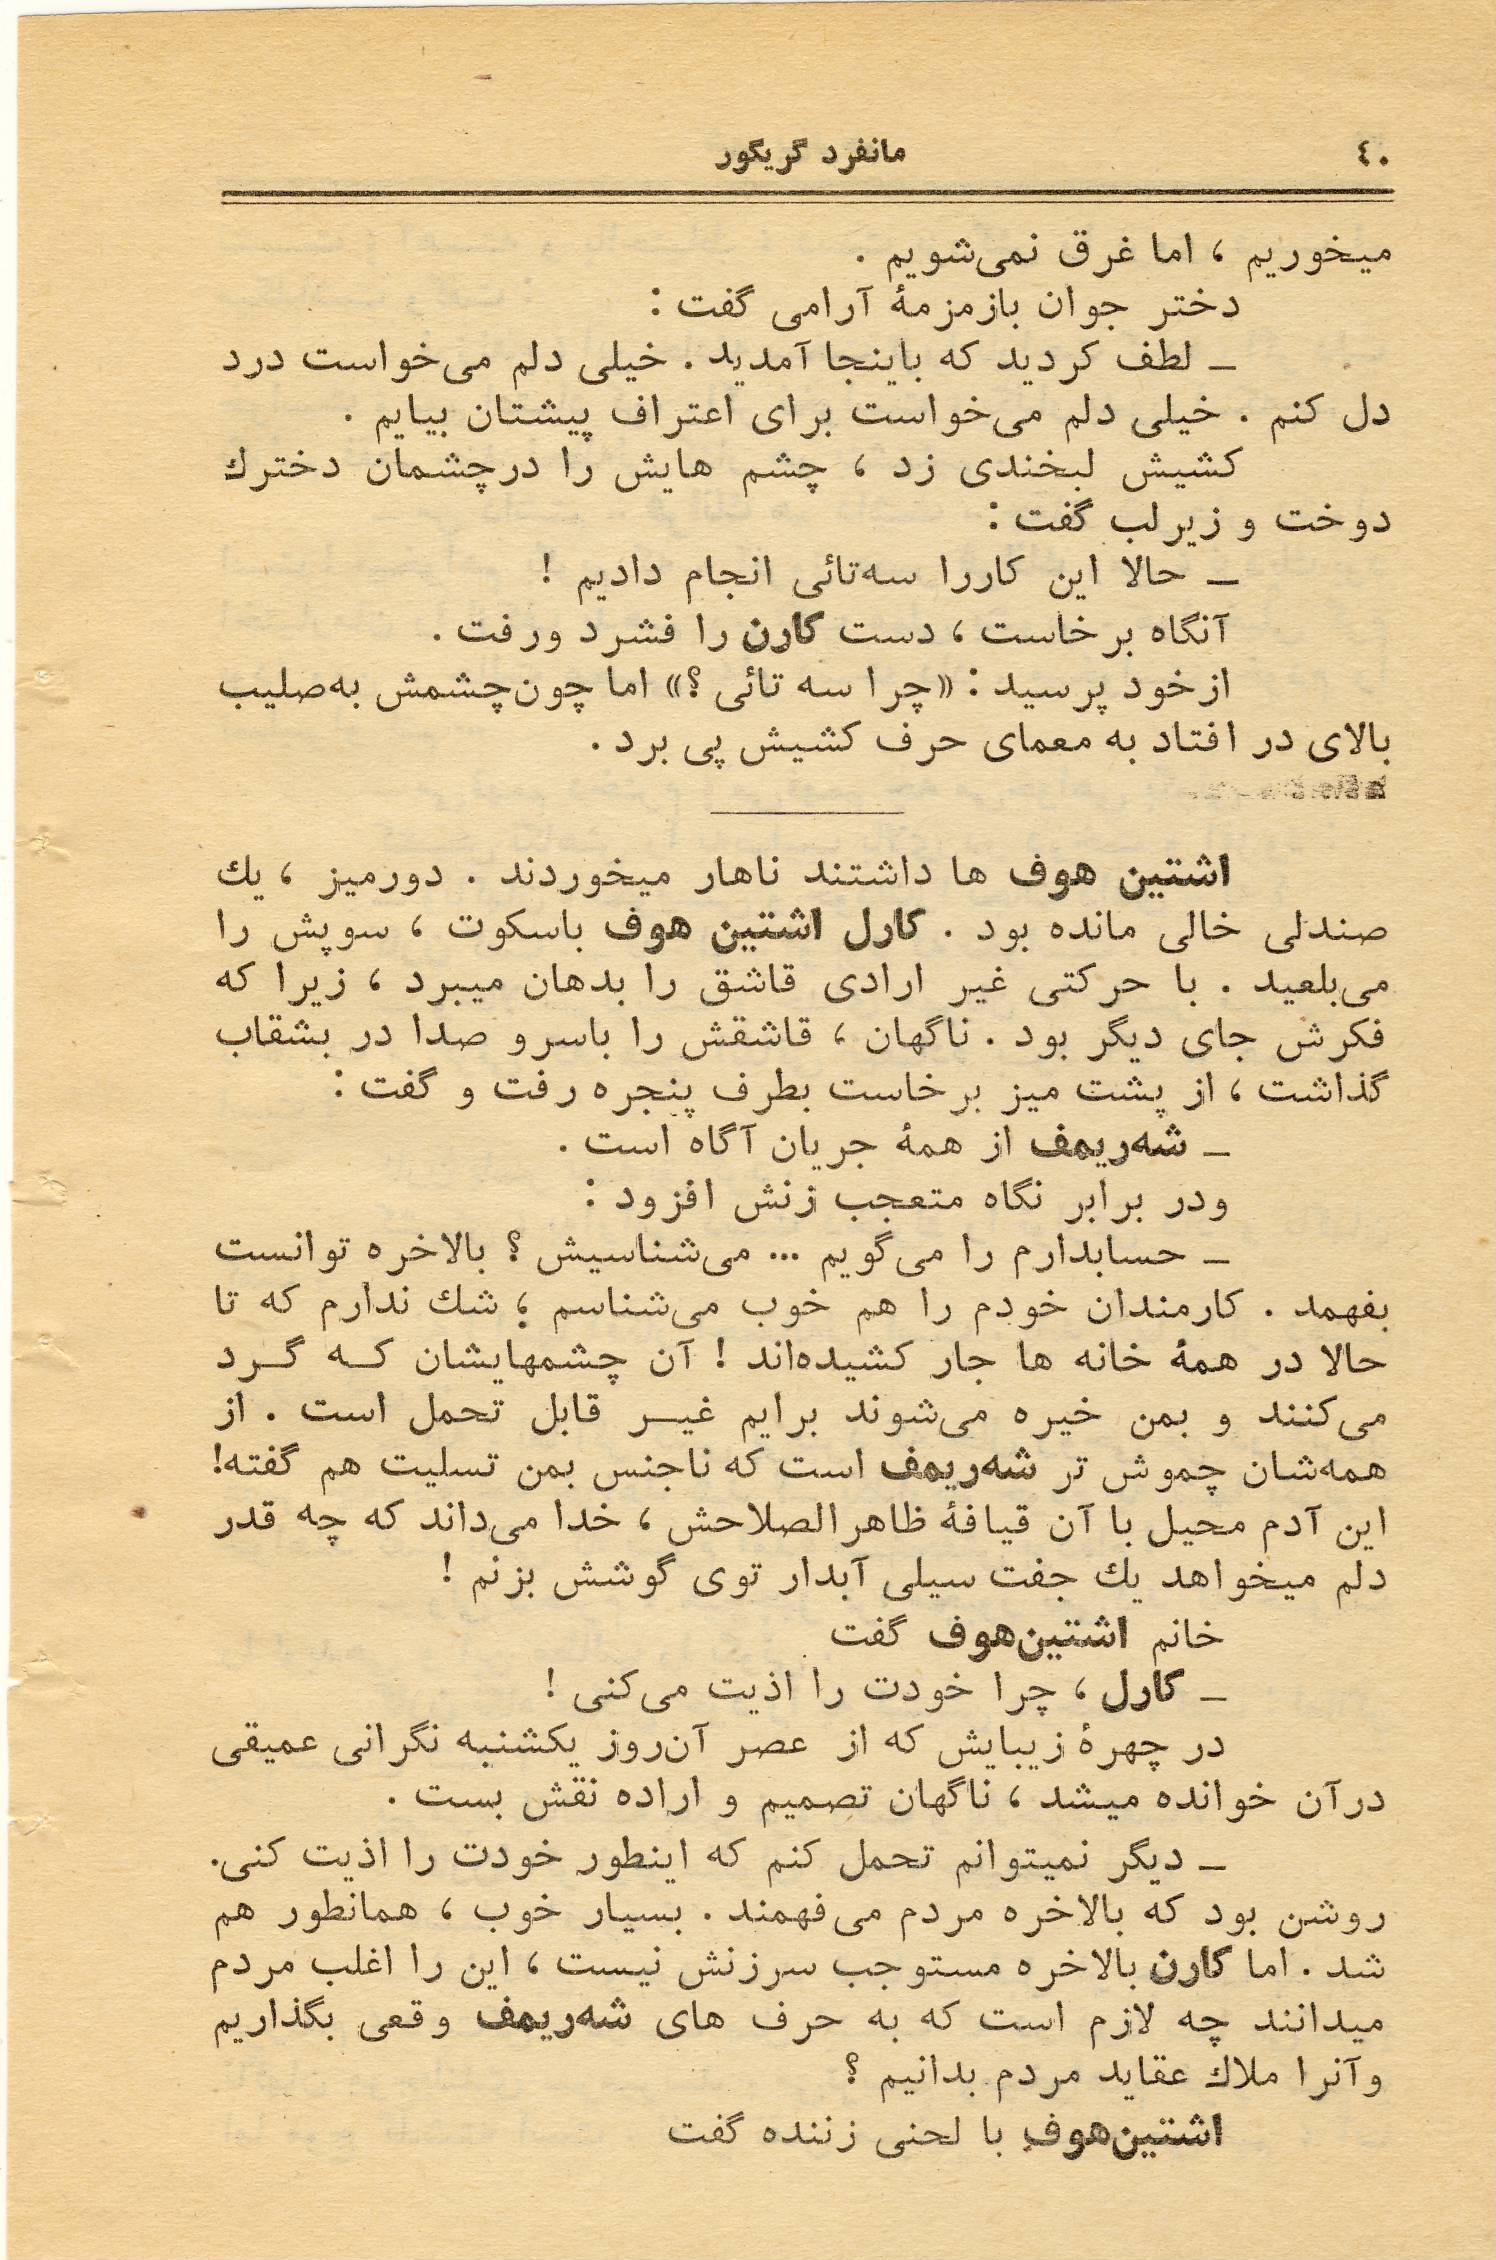 ٤٠
مانفرد گریگور
میخوریم ، اما غرق نمی‌شویم .
دختر جوان بازمزمهٔ آرامی گفت :
ـ لطف کردید که باینجا آمدید . خیلی دلم می‌خواست درد
دل کنم . خیلی دلم می‌خواست برای اعتراف پیشتان بیایم .
کشیش لبخندی زد ، چشم هایش را درچشمان دخترك
دوخت و زیرلب گفت :
ـ حالا این کاررا سه‌تائی انجام دادیم !
آنگاه برخاست ، دست کارن را فشرد ورفت .
ازخود پرسید : «چرا سه تائی ؟» اما چون‌چشمش به‌صلیب
بالای در افتاد به معمای حرف کشیش پی برد .
اشتین هوف ها داشتند ناهار میخوردند . دورمیز ، یك
صندلی خالی مانده بود . کارل اشتین هوف باسکوت ، سوپش را
می‌بلعید . با حرکتی غیر ارادی قاشق را بدهان میبرد ، زیرا که
فکرش جای دیگر بود . ناگهان ، قاشقش را باسرو صدا در بشقاب
گذاشت ، از پشت میز برخاست بطرف پنجره رفت و گفت :
ـ شه‌ریمف از همهٔ جریان آگاه است .
ودر برابر نگاه متعجب زنش افزود :
ـ حسابدارم را می‌گویم ... می‌شناسیش ؟ بالاخره توانست
بفهمد . کارمندان خودم را هم خوب می‌شناسم ؛ شك ندارم که تا
حالا در همهٔ خانه ها جار کشیده‌اند ! آن چشمهایشان کــه گــرد
می‌کنند و بمن خیره می‌شوند برایم غیــر قابل تحمل است . از
همه‌شان چموش تر شه‌ریمف است که ناجنس بمن تسلیت هم گفته!
این آدم محیل با آن قیافهٔ ظاهرالصلاحش ، خدا می‌داند که چه قدر
دلم میخواهد یك جفت سیلی آبدار توی گوشش بزنم !
خانم اشتین‌هوف گفت
ـ کارل ، چرا خودت را اذیت می‌کنی !
در چهرهٔ زیبایش که از عصر آن‌روز یکشنبه نگرانی عمیقی
درآن خوانده میشد ، ناگهان تصمیم و اراده نقش بست .
ـ دیگر نمیتوانم تحمل کنم که اینطور خودت را اذیت کنی.
روشن بود که بالاخره مردم می‌فهمند . بسیار خوب ، همانطور هم
شد . اما کارن بالاخره مستوجب سرزنش نیست ، این را اغلب مردم
میدانند چه لازم است که به حرف های شه‌ریمف وقعی بگذاریم
وآنرا ملاك عقاید مردم بدانیم ؟
اشتین‌هوف با لحنی زننده گفت